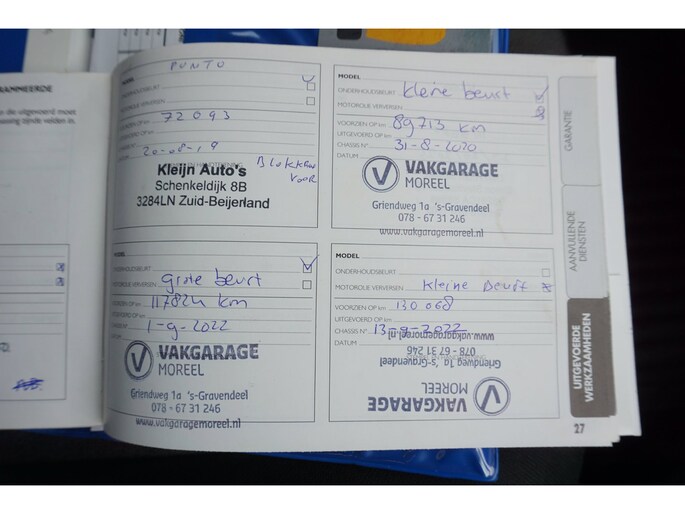 RAMMEERDE
n die uitgevoerd moet
passing zijnde velden in.
PUNTO
ONDERHOUDSBEURT
MOTOROLIE VERVERSEN
72093
20-08-19
BLOKKEN
VOOR
Kleijn Auto's
Schenkeldijk 8B
3284LN Zuid-Beijerland
MODEL
ONDERHOUDSBEURT kleine beurt
MOTOROLIE VERVERSEN
VOORZIEN OP km 89713 km
UITGEVOERD OP km
CHASSIS N° 31-8-2020
DATUM
VAKGARAGE
MOREEL
Griendweg 1a 's-Gravendeel
078 - 67 31 246
www.vakgaragemoreel.nl
MODEL
ONDERHOUDSBEURT
grote beurt
MOTOROLIE VERVERSEN
117824 km
1-9-2022
VAKGARAGE
MOREEL
Griendweg 1a 's-Gravendeel
078 - 67 31 246
www.vakgaragemoreel.nl
MODEL
ONDERHOUDSBEURT
MOTOROLIE VERVERSEN kleine beurt
VOORZIEN OP km 130068
UITGEVOERD OP km
CHASSIS N° 13-9-2022
DATUM
www.vakgaragemoreel.nl
078 - 67 31 246
Griendweg 1a 's-Gravendeel
MOREEL
VAKGARAGE
GARANTIE
AANVULLENDE
DIENSTEN
UITGEVOERDE
WERKZAAMHEDEN
27